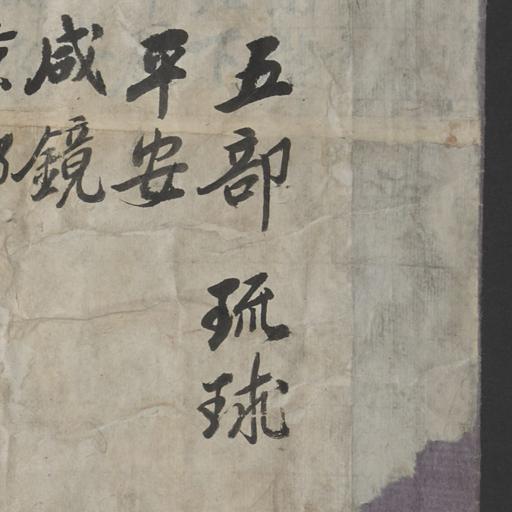 五部 琉球
平安
咸鏡
京